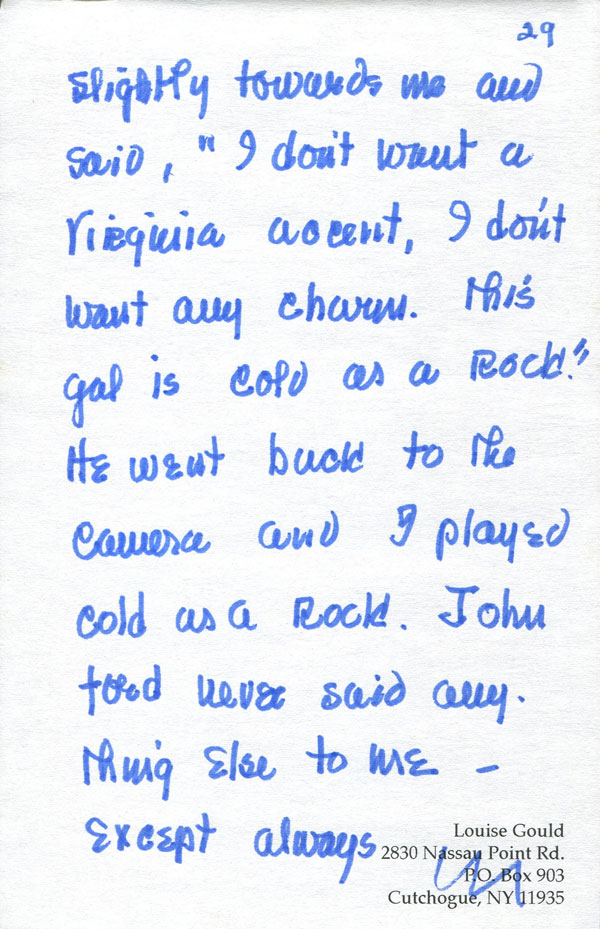 29
slightly towards me and
said, "I don't want a
Virginia accent, I don't
want any charm. This
gal is cold as a Rock."
He went back to the
camera and I played
cold as a Rock. John
Ford never said any-
thing else to me -
except always
Louise Gould
2830 Nassau Point Rd.
P.O. Box 903
Cutchogue, NY 11935